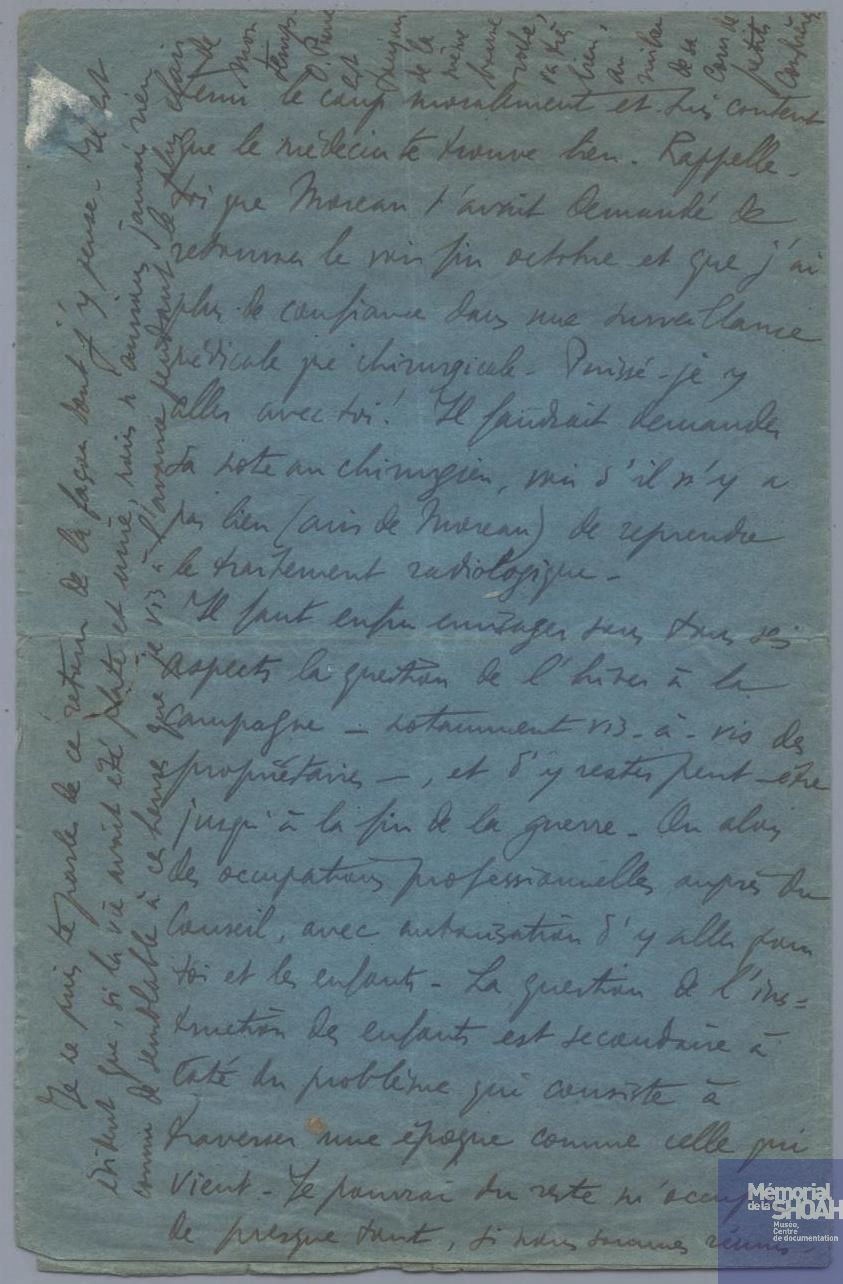 tenu le coup moralement et suis content
que le médecin te trouve bien. Rappelle-
toi que Moreau t'avait demandé de
retourner le voir fin octobre et que j'ai
plus de confiance dans une surveillance
médicale que chirurgicale - Puissé-je y
aller avec toi! Il faudrait demander
sa note au chirurgien, voir s'il n'y a
pas lieu (avis de Moreau) de reprendre
le traitement radiologique -
Il faut enfin envisager sous tous ses
aspects la question de l'hiver à la
campagne - notamment vis-à-vis des
propriétaires -, et d'y rester peut-être
jusqu'à la fin de la guerre - Ou alors
des occupations professionnelles auprès du
Conseil, avec autorisation d'y aller pour
toi et les enfants - La question de l'ins=
truction des enfants est secondaire à
côté du problème qui consiste à
traverser une époque comme celle qui
vient - Je pourrai du reste m'occuper
de presque tout, si nous sommes réunis -
Je ne puis te parler de ce retour de la façon dont j'y pense - Il est
évident que, si la vie avait été plate et unie, nous n'aurions jamais rien
connu de semblable à ce temps que je vis à l'avance pendant le plus clair
de
mon
temps -
P.
est
toujours
de la
même
bonne
va très
bien,
au
milieu
de sa
cour de
petits
Mémorial
de la SHOAH
Musée,
Centre
de documentation